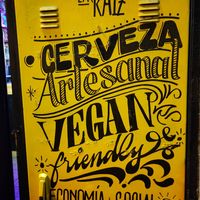 LA RAÍZ
CERVEZA
Artesanal
VEGAN
friendly
ECONOMÍA SOCIAL